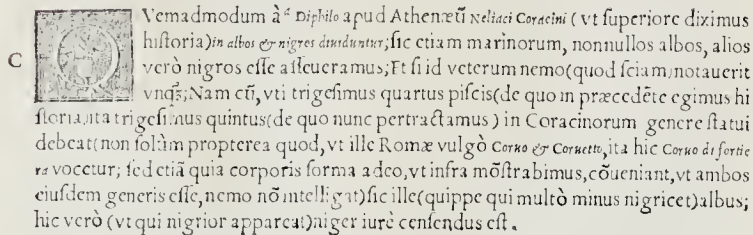 QVemadmodum à ᵈ Diphilo apud Athenæũ Neliaci Coracini ( vt ſuperiore diximus
hiſtoria)in albos & nigros diuiduntur;ſic etiam marinorum, nonnullos albos, alios
C verò nigros eſſe aſſeueramus;Et ſi id veterum nemo(quod ſciam)notauerit
vnqꝫ;Nam cũ, vti trigeſimus quartus piſcis(de quo in præcedẽte egimus hi
ſtoria)ita trigeſimus quintus(de quo nunc pertractamus ) in Coracinorum genere ſtatui
debeat(non ſolùm propterea quod, vt ille Romæ vulgò Coruo & Coruetto, ita hic Coruo di fortie
ra vocetur; ſed etiã quia corporis forma adeo, vt infra mõſtrabimus, cõueniant, vt ambos
eiuſdem generis eſſe, nemo nõ intelligat)ſic ille(quippe qui multò minus nigricet)albus;
hic verò (vt qui nigrior appareat)niger iurè cenſendus eſt.